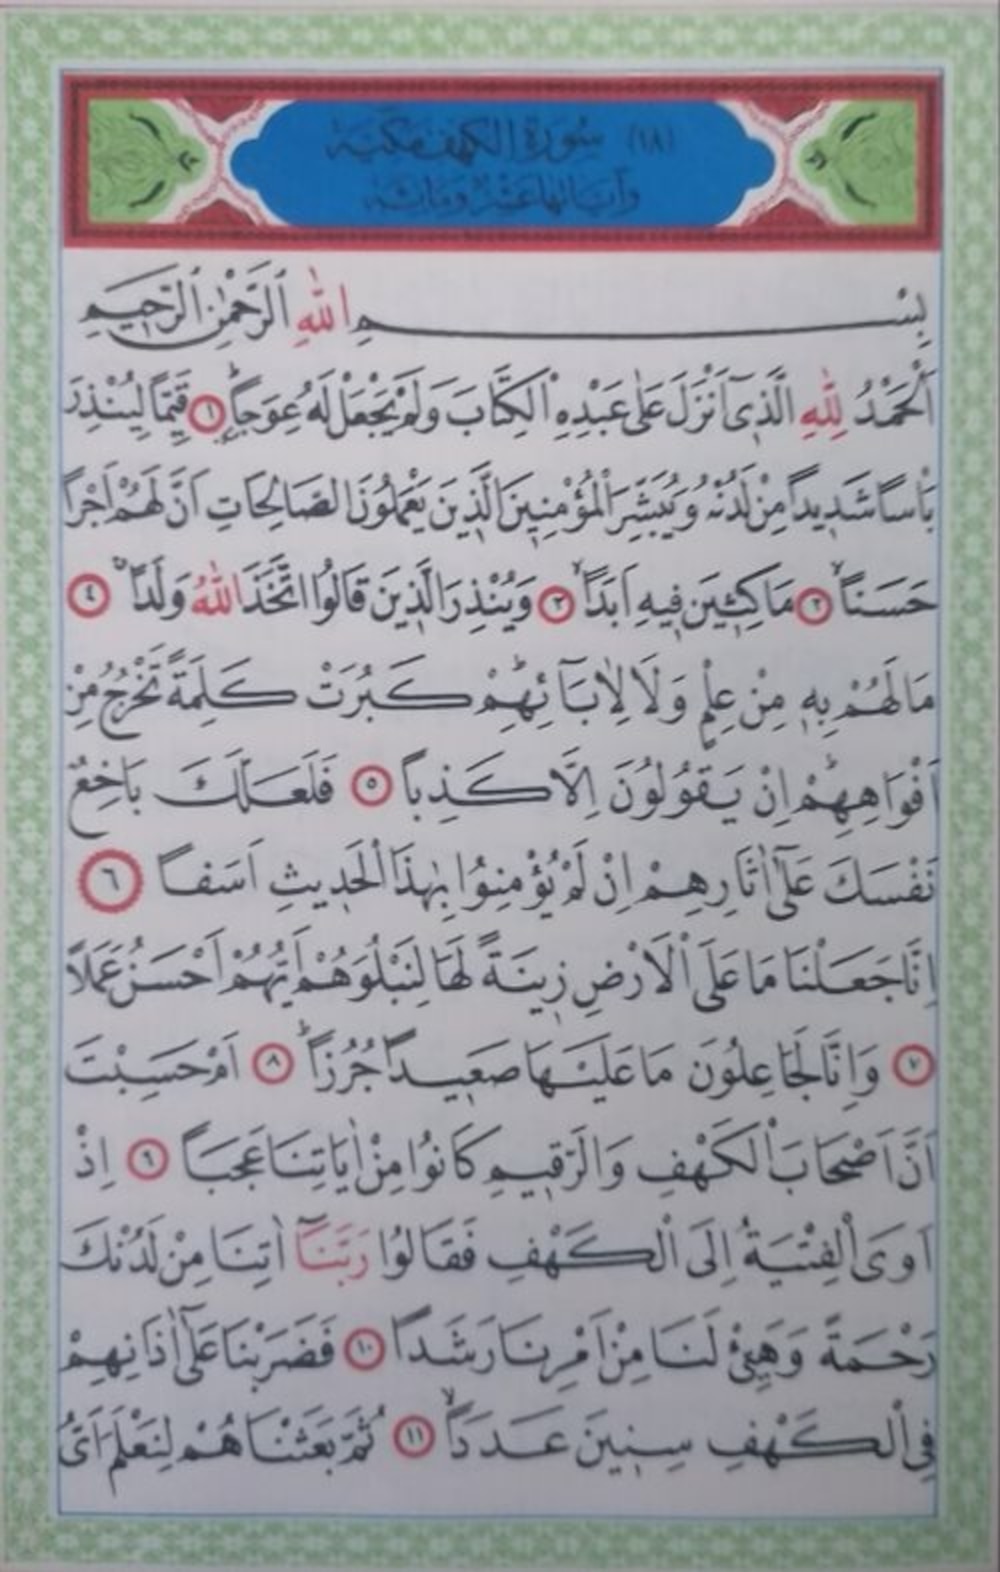 (١٨) سُورَةُ الْكَهْفِ مَكِّيَّة
وَآيَاتُهَا عَشْرٌ وَمِائَة
بِسْمِ اللّٰهِ الرَّحْمٰنِ الرَّحِيمِ
اَلْحَمْدُ لِلّٰهِ الَّذِى اَنْزَلَ عَلٰى عَبْدِهِ الْكِتَابَ وَلَمْ يَجْعَلْ لَهُ عِوَجاً ﴿١﴾ قَيِّماً لِيُنْذِرَ
بَأْساً شَدِيداً مِنْ لَدُنْهُ وَيُبَشِّرَ الْمُؤْمِنِينَ الَّذِينَ يَعْمَلُونَ الصَّالِحَاتِ اَنَّ لَهُمْ اَجْراً
حَسَناً ﴿٢﴾ مَاكِثِينَ فِيهِ اَبَداً ﴿٣﴾ وَيُنْذِرَ الَّذِينَ قَالُوا اتَّخَذَ اللّٰهُ وَلَداً ﴿٤﴾
مَا لَهُمْ بِهِ مِنْ عِلْمٍ وَلَا لِاٰبَائِهِمْ كَبُرَتْ كَلِمَةً تَخْرُجُ مِنْ
اَفْوَاهِهِمْ اِنْ يَقُولُونَ اِلَّا كَذِباً ﴿٥﴾ فَلَعَلَّكَ بَاخِعٌ
نَفْسَكَ عَلٰٓى اٰثَارِهِمْ اِنْ لَمْ يُؤْمِنُوا بِهٰذَا الْحَدِيثِ اَسَفاً ﴿٦﴾
اِنَّا جَعَلْنَا مَا عَلَى الْاَرْضِ زِينَةً لَهَا لِنَبْلُوَهُمْ اَيُّهُمْ اَحْسَنُ عَمَلاً
﴿٧﴾ وَاِنَّا لَجَاعِلُونَ مَا عَلَيْهَا صَعِيداً جُرُزاً ﴿٨﴾ اَمْ حَسِبْتَ
اَنَّ اَصْحَابَ الْكَهْفِ وَالرَّقِيمِ كَانُوا مِنْ اٰيَاتِنَا عَجَباً ﴿٩﴾ اِذْ
اَوَى الْفِتْيَةُ اِلَى الْكَهْفِ فَقَالُوا رَبَّنَآ اٰتِنَا مِنْ لَدُنْكَ
رَحْمَةً وَهَيِّئْ لَنَا مِنْ اَمْرِنَا رَشَداً ﴿١٠﴾ فَضَرَبْنَا عَلٰٓى اٰذَانِهِمْ
فِى الْكَهْفِ سِنِينَ عَدَداً ﴿١١﴾ ثُمَّ بَعَثْنَاهُمْ لِنَعْلَمَ اَىُّ